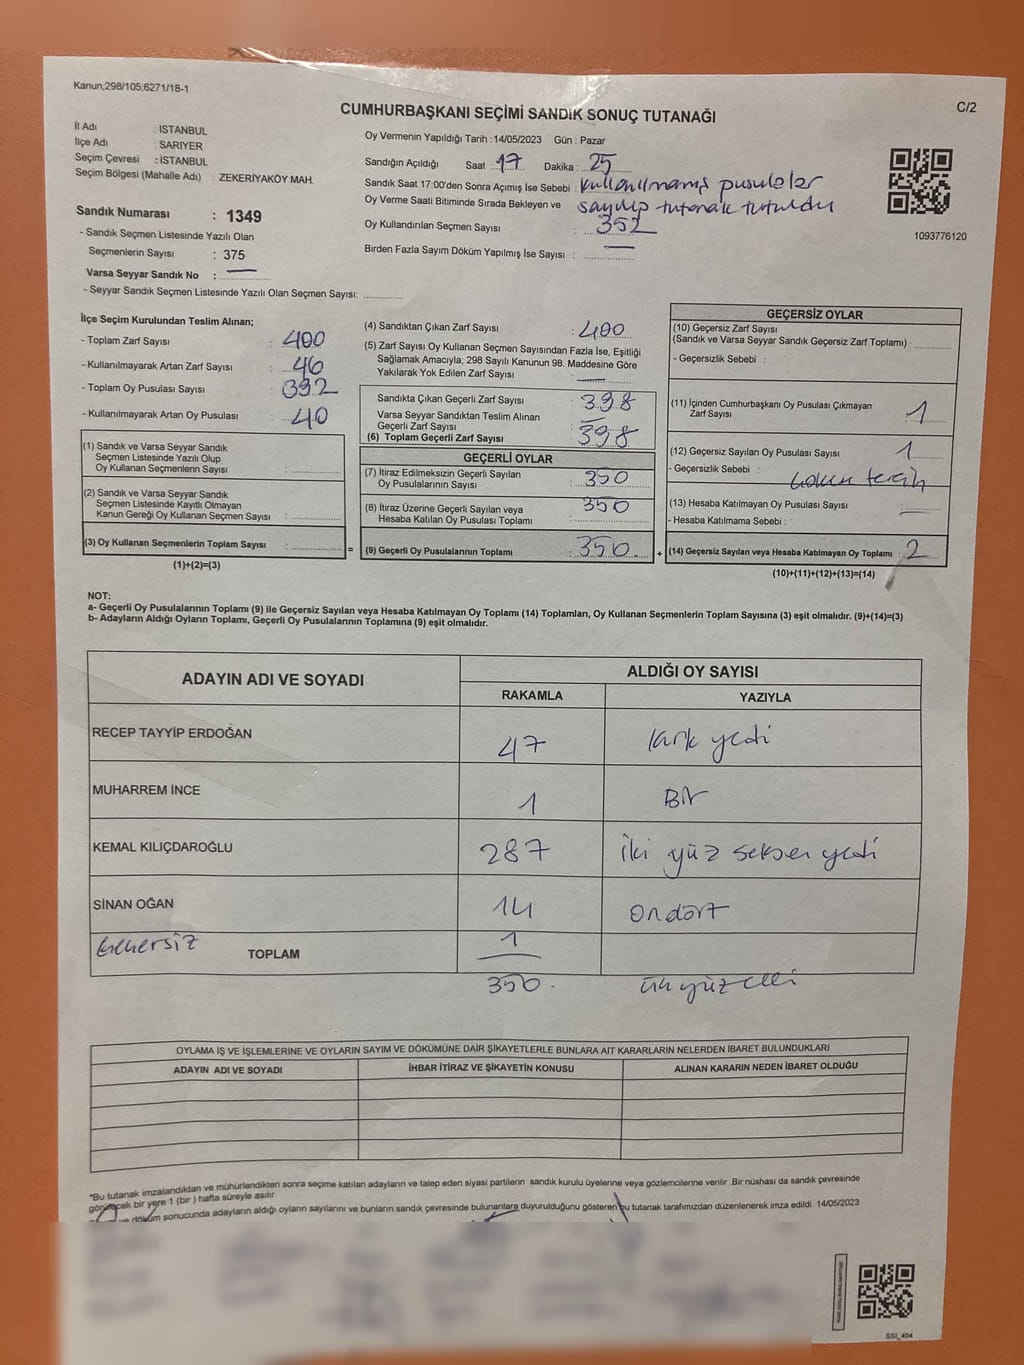 Kanun;298/105;6271/18-1
C/2
CUMHURBAŞKANI SEÇİMİ SANDIK SONUÇ TUTANAĞI
İl Adı : İSTANBUL
İlçe Adı : SARIYER
Seçim Çevresi : İSTANBUL
Seçim Bölgesi (Mahalle Adı) : ZEKERİYAKÖY MAH.
Sandık Numarası : 1349
- Sandık Seçmen Listesinde Yazılı Olan
Seçmenlerin Sayısı : 375
Varsa Seyyar Sandık No :
- Seyyar Sandık Seçmen Listesinde Yazılı Olan Seçmen Sayısı:
Oy Vermenin Yapıldığı Tarih :14/05/2023 Gün : Pazar
Sandığın Açıldığı Saat : 17 Dakika : 25
Sandık Saat 17:00'den Sonra Açımış İse Sebebi : kullanılmamış pusulalar
sayılıp tutanak tutuldu
Oy Verme Saati Bitiminde Sırada Bekleyen ve
Oy Kullandırılan Seçmen Sayısı : 352
Birden Fazla Sayım Döküm Yapılmış İse Sayısı : —
1093776120
İlçe Seçim Kurulundan Teslim Alınan;
- Toplam Zarf Sayısı : 400
- Kullanılmayarak Artan Zarf Sayısı : 46
- Toplam Oy Pusulası Sayısı : 392
- Kullanılmayarak Artan Oy Pusulası : 40
(1) Sandık ve Varsa Seyyar Sandık
Seçmen Listesinde Yazılı Olup
Oy Kullanan Seçmenlerın Sayısı :
(2) Sandık ve Varsa Seyyar Sandık
Seçmen Listesinde Kayıtlı Olmayan
Kanun Gereği Oy Kullanan Seçmen Sayısı :
(3) Oy Kullanan Seçmenlerin Toplam Sayısı :
(1)+(2)=(3)
(4) Sandıktan Çıkan Zarf Sayısı : 400
(5) Zarf Sayısı Oy Kullanan Seçmen Sayısından Fazla İse, Eşitliği
Sağlamak Amacıyla, 298 Sayılı Kanunun 98. Maddesine Göre
Yakılarak Yok Edilen Zarf Sayısı : —
Sandıkta Çıkan Geçerli Zarf Sayısı : 398
Varsa Seyyar Sandıktan Teslim Alınan
Geçerli Zarf Sayısı : —
(6) Toplam Geçerli Zarf Sayısı : 398
GEÇERLİ OYLAR
(7) İtiraz Edilmeksizin Geçerli Sayılan
Oy Pusulalarının Sayısı : 350
(8) İtiraz Üzerine Geçerli Sayılan veya
Hesaba Katılan Oy Pusulası Toplamı : 350
= (9) Geçerli Oy Pusulalarının Toplamı : 350 +
GEÇERSİZ OYLAR
(10) Geçersiz Zarf Sayısı
(Sandık ve Varsa Seyyar Sandık Geçersiz Zarf Toplamı) :
- Geçersizlik Sebebi :
(11) İçinden Cumhurbaşkanı Oy Pusulası Çıkmayan
Zarf Sayısı : 1
(12) Geçersiz Sayılan Oy Pusulası Sayısı : 1
- Geçersizlik Sebebi : tercih
(13) Hesaba Katılmayan Oy Pusulası Sayısı : —
- Hesaba Katılmama Sebebi :
(14) Geçersiz Sayılan veya Hesaba Katılmayan Oy Toplamı : 2
(10)+(11)+(12)+(13)=(14)
NOT:
a- Geçerli Oy Pusulalarının Toplamı (9) ile Geçersiz Sayılan veya Hesaba Katılmayan Oy Toplamı (14) Toplamları, Oy Kullanan Seçmenlerin Toplam Sayısına (3) eşit olmalıdır. (9)+(14)=(3)
b- Adayların Aldığı Oyların Toplamı, Geçerli Oy Pusulalarının Toplamına (9) eşit olmalıdır.
ADAYIN ADI VE SOYADI ALDIĞI OY SAYISI
RAKAMLA YAZIYLA
RECEP TAYYİP ERDOĞAN 47 kırk yedi
MUHARREM İNCE 1 Bir
KEMAL KILIÇDAROĞLU 287 iki yüz seksen yedi
SİNAN OĞAN 14 ondört
Geçersiz TOPLAM 1
350 üç yüz elli
OYLAMA İŞ VE İŞLEMLERİNE VE OYLARIN SAYIM VE DÖKÜMÜNE DAİR ŞİKAYETLERLE BUNLARA AİT KARARLARIN NELERDEN İBARET BULUNDUKLARI
ADAYIN ADI VE SOYADI İHBAR İTİRAZ VE ŞİKAYETİN KONUSU ALINAN KARARIN NEDEN İBARET OLDUĞU
*Bu tutanak imzalandıktan ve mühürlendikten sonra seçime katılan adayların ve talep eden siyasi partilerin sandık kurulu üyelerine veya gözlemcilerine verilir .Bir nüshası da sandık çevresinde
görülecek bir yere 1 (bir ) hafta süreyle asılır.
ve döküm sonucunda adayların aldığı oyların sayılarını ve bunların sandık çevresinde bulunanlara duyurulduğunu gösteren bu tutanak tarafımızdan düzenlenerek imza edildi. 14/05/2023
SSI_404